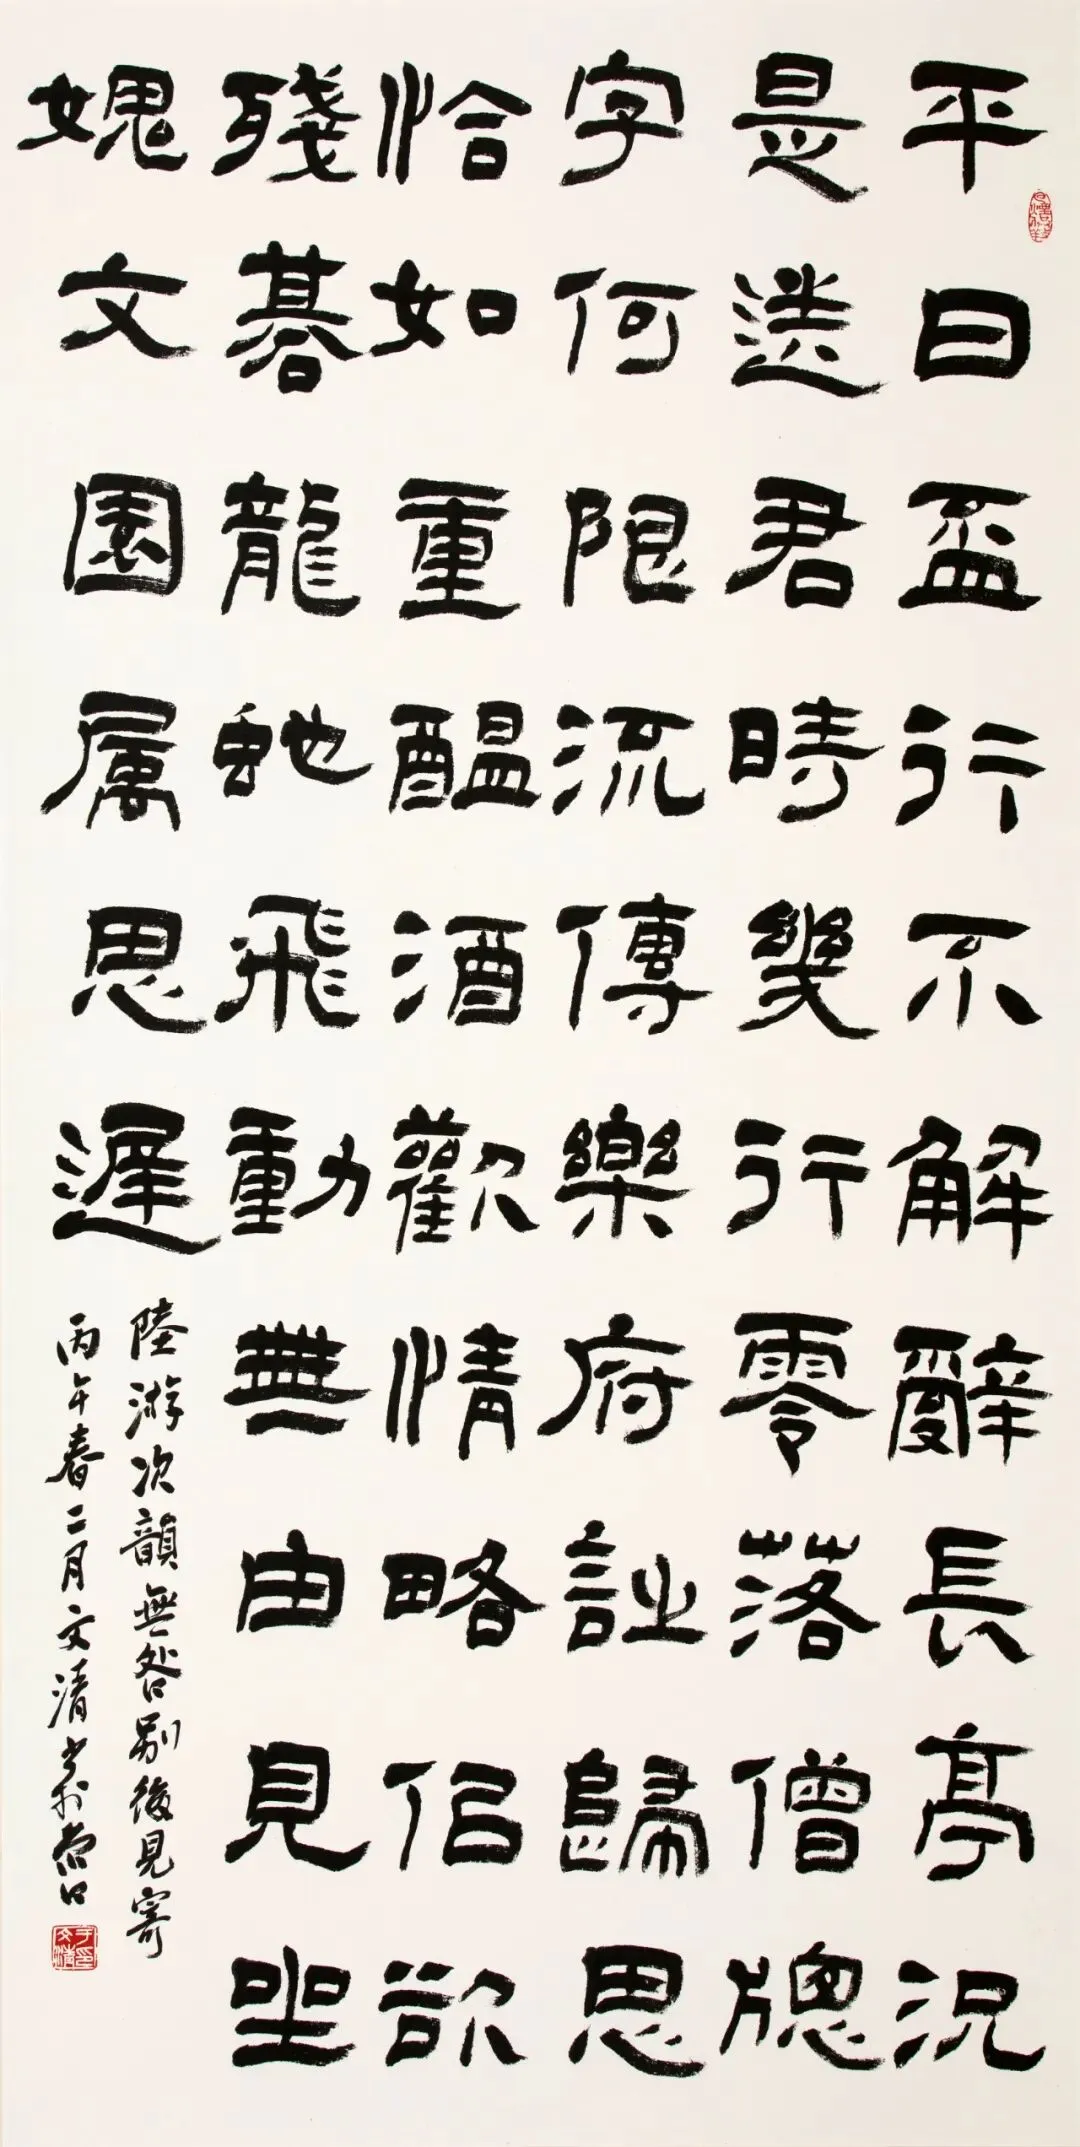 平日盃行不解辭長亭況
是送君時幾行零落僧牕
字何限流傳樂府詩歸思
恰如重醞酒歡情略佀欲
殘碁龍蛇飛動無由見坐
媿文園属思遲
陸游次韻無咎別後見寄
丙午春二月文清书於营口